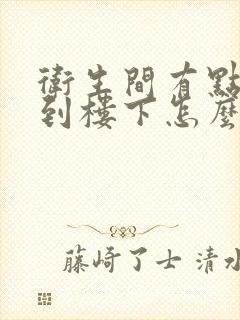 衛生間有點
到樓下怎麼
藤崎了士 清水